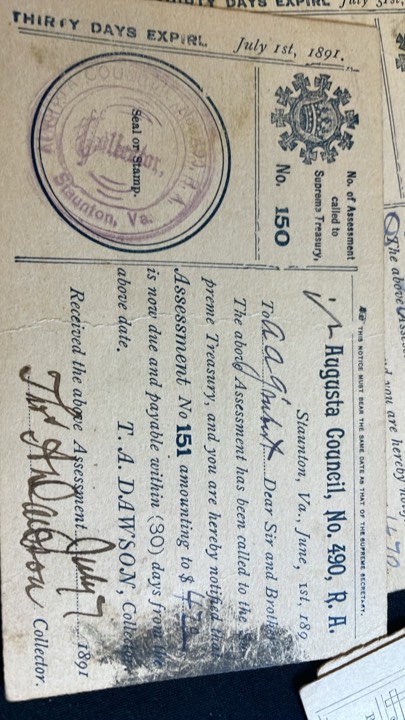 THIRTY DAYS EXPIRE July 1st, 1891.
No. of Assessment
called to
Supreme Treasury,
No. 150
AUGUSTA COUNCIL
Collector,
Seal or Stamp.
Staunton, Va.
THIS NOTICE MUST BEAR THE SAME DATE AS THAT OF THE SUPREME SECRETARY.
Augusta Council, No. 490, R. A.
Staunton, Va., June, 1st, 189
To Dear Sir and Broth
The above Assessment has been called to the
preme Treasury, and you are hereby notified that
Assessment No 151 amounting to $
is now due and payable within (30) days from the
above date. T. A. DAWSON, Collector
Received the above Assessment July 7 1891
Thos A Dawson Collector.
THIRTY DAYS EXPIRE July 31st,
The above
you are hereby